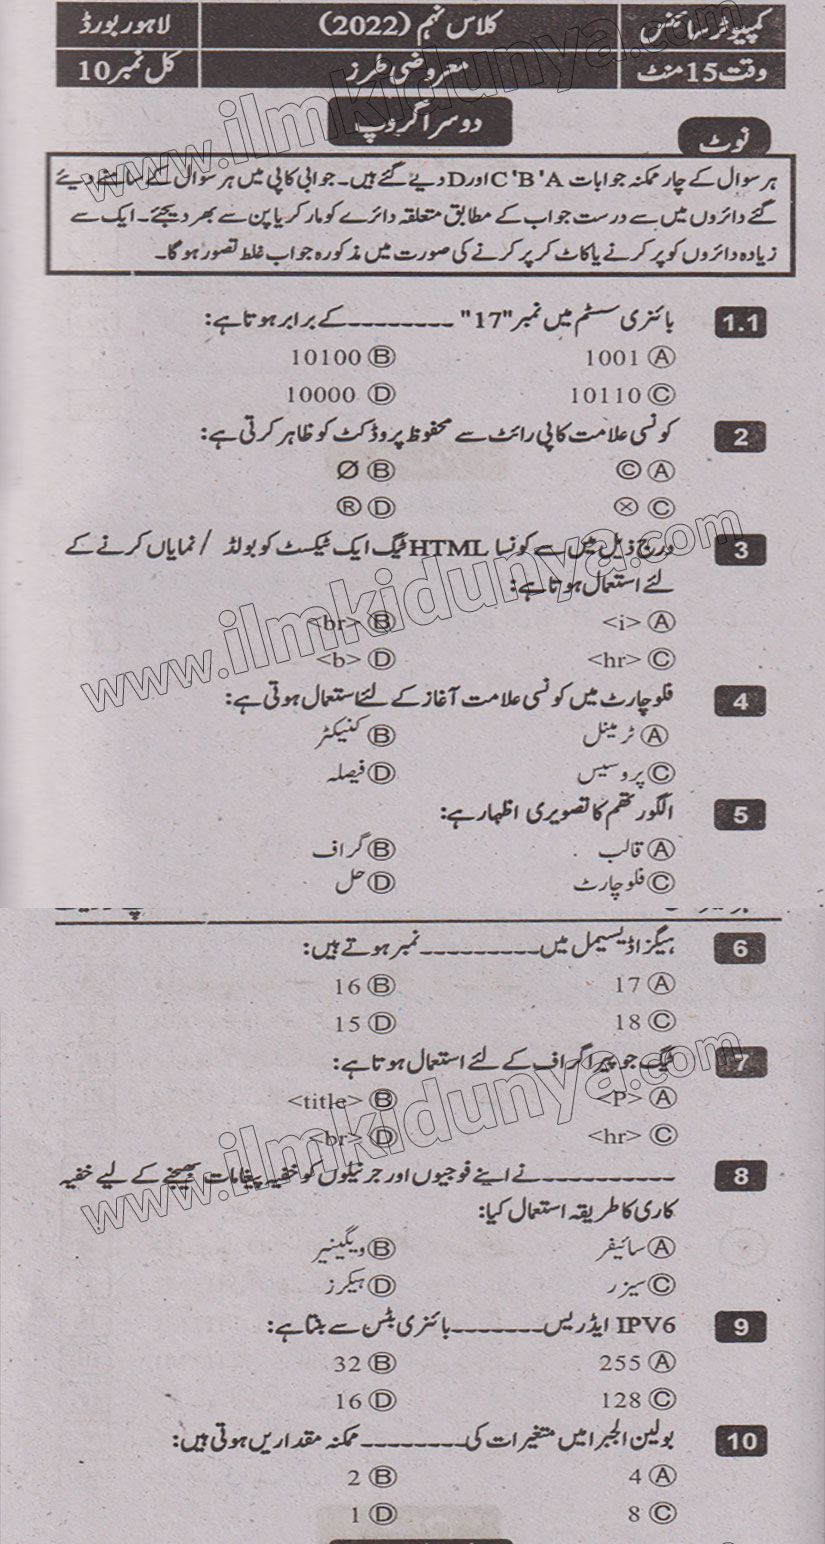 کمپیوٹر سائنس کلاس نہم (2022) لاہور بورڈ
وقت 15 منٹ معروضی طرز کل نمبر 10
دوسرا گروپ
نوٹ
ہر سوال کے چار ممکنہ جوابات C'B'A اور D دیے گئے ہیں۔ جوابی کاپی میں ہر سوال کے سامنے دیئے
گئے دائروں میں سے درست جواب کے مطابق متعلقہ دائرے کو مار کر یا پن سے بھر دیجئے۔ ایک سے
زیادہ دائروں کو پر کرنے یا کاٹ کر پر کرنے کی صورت میں مذکورہ جواب غلط تصور ہو گا۔
1.1 بائنری سسٹم میں نمبر "17" ________ کے برابر ہوتا ہے:
Ⓐ 1001 Ⓑ 10100
Ⓒ 10110 Ⓓ 10000
2 کونسی علامت کاپی رائٹ سے محفوظ پروڈکٹ کو ظاہر کرتی ہے:
Ⓐ © Ⓑ Ø
Ⓒ ⊗ Ⓓ ®
3 درج ذیل میں سے کونسا HTML ٹیگ ایک ٹیکسٹ کو بولڈ / نمایاں کرنے کے
لئے استعمال ہوتا ہے:
Ⓐ <i> Ⓑ <br>
Ⓒ <hr> Ⓓ <b>
4 فلوچارٹ میں کونسی علامت آغاز کے لئے استعمال ہوتی ہے:
Ⓐ ٹرمینل Ⓑ کنیکٹر
Ⓒ پروسیس Ⓓ فیصلہ
5 الگورتھم کا تصویری اظہار ہے:
Ⓐ قالب Ⓑ گراف
Ⓒ فلوچارٹ Ⓓ حل
6 ہیگزاڈیسیمل میں _________ نمبر ہوتے ہیں:
Ⓐ 17 Ⓑ 16
Ⓒ 18 Ⓓ 15
7 ٹیگ جو پیراگراف کے لئے استعمال ہوتا ہے:
Ⓐ <P> Ⓑ <title>
Ⓒ <hr> Ⓓ <br>
8 ___________ نے اپنے فوجیوں اور جرنیلوں کو خفیہ پیغامات بھیجنے کے لیے خفیہ
کاری کا طریقہ استعمال کیا:
Ⓐ سائیفر Ⓑ ویگینیر
Ⓒ سیزر Ⓓ ہیکرز
9 IPV6 ایڈریس _______ بائنری بٹس سے بنتا ہے:
Ⓐ 255 Ⓑ 32
Ⓒ 128 Ⓓ 16
10 بولین الجبرا میں متغیرات کی ________ ممکنہ مقداریں ہوتی ہیں:
Ⓐ 4 Ⓑ 2
Ⓒ 8 Ⓓ 1
www.ilmkidunya.com
www.ilmkidunya.com
www.ilmkidunya.com